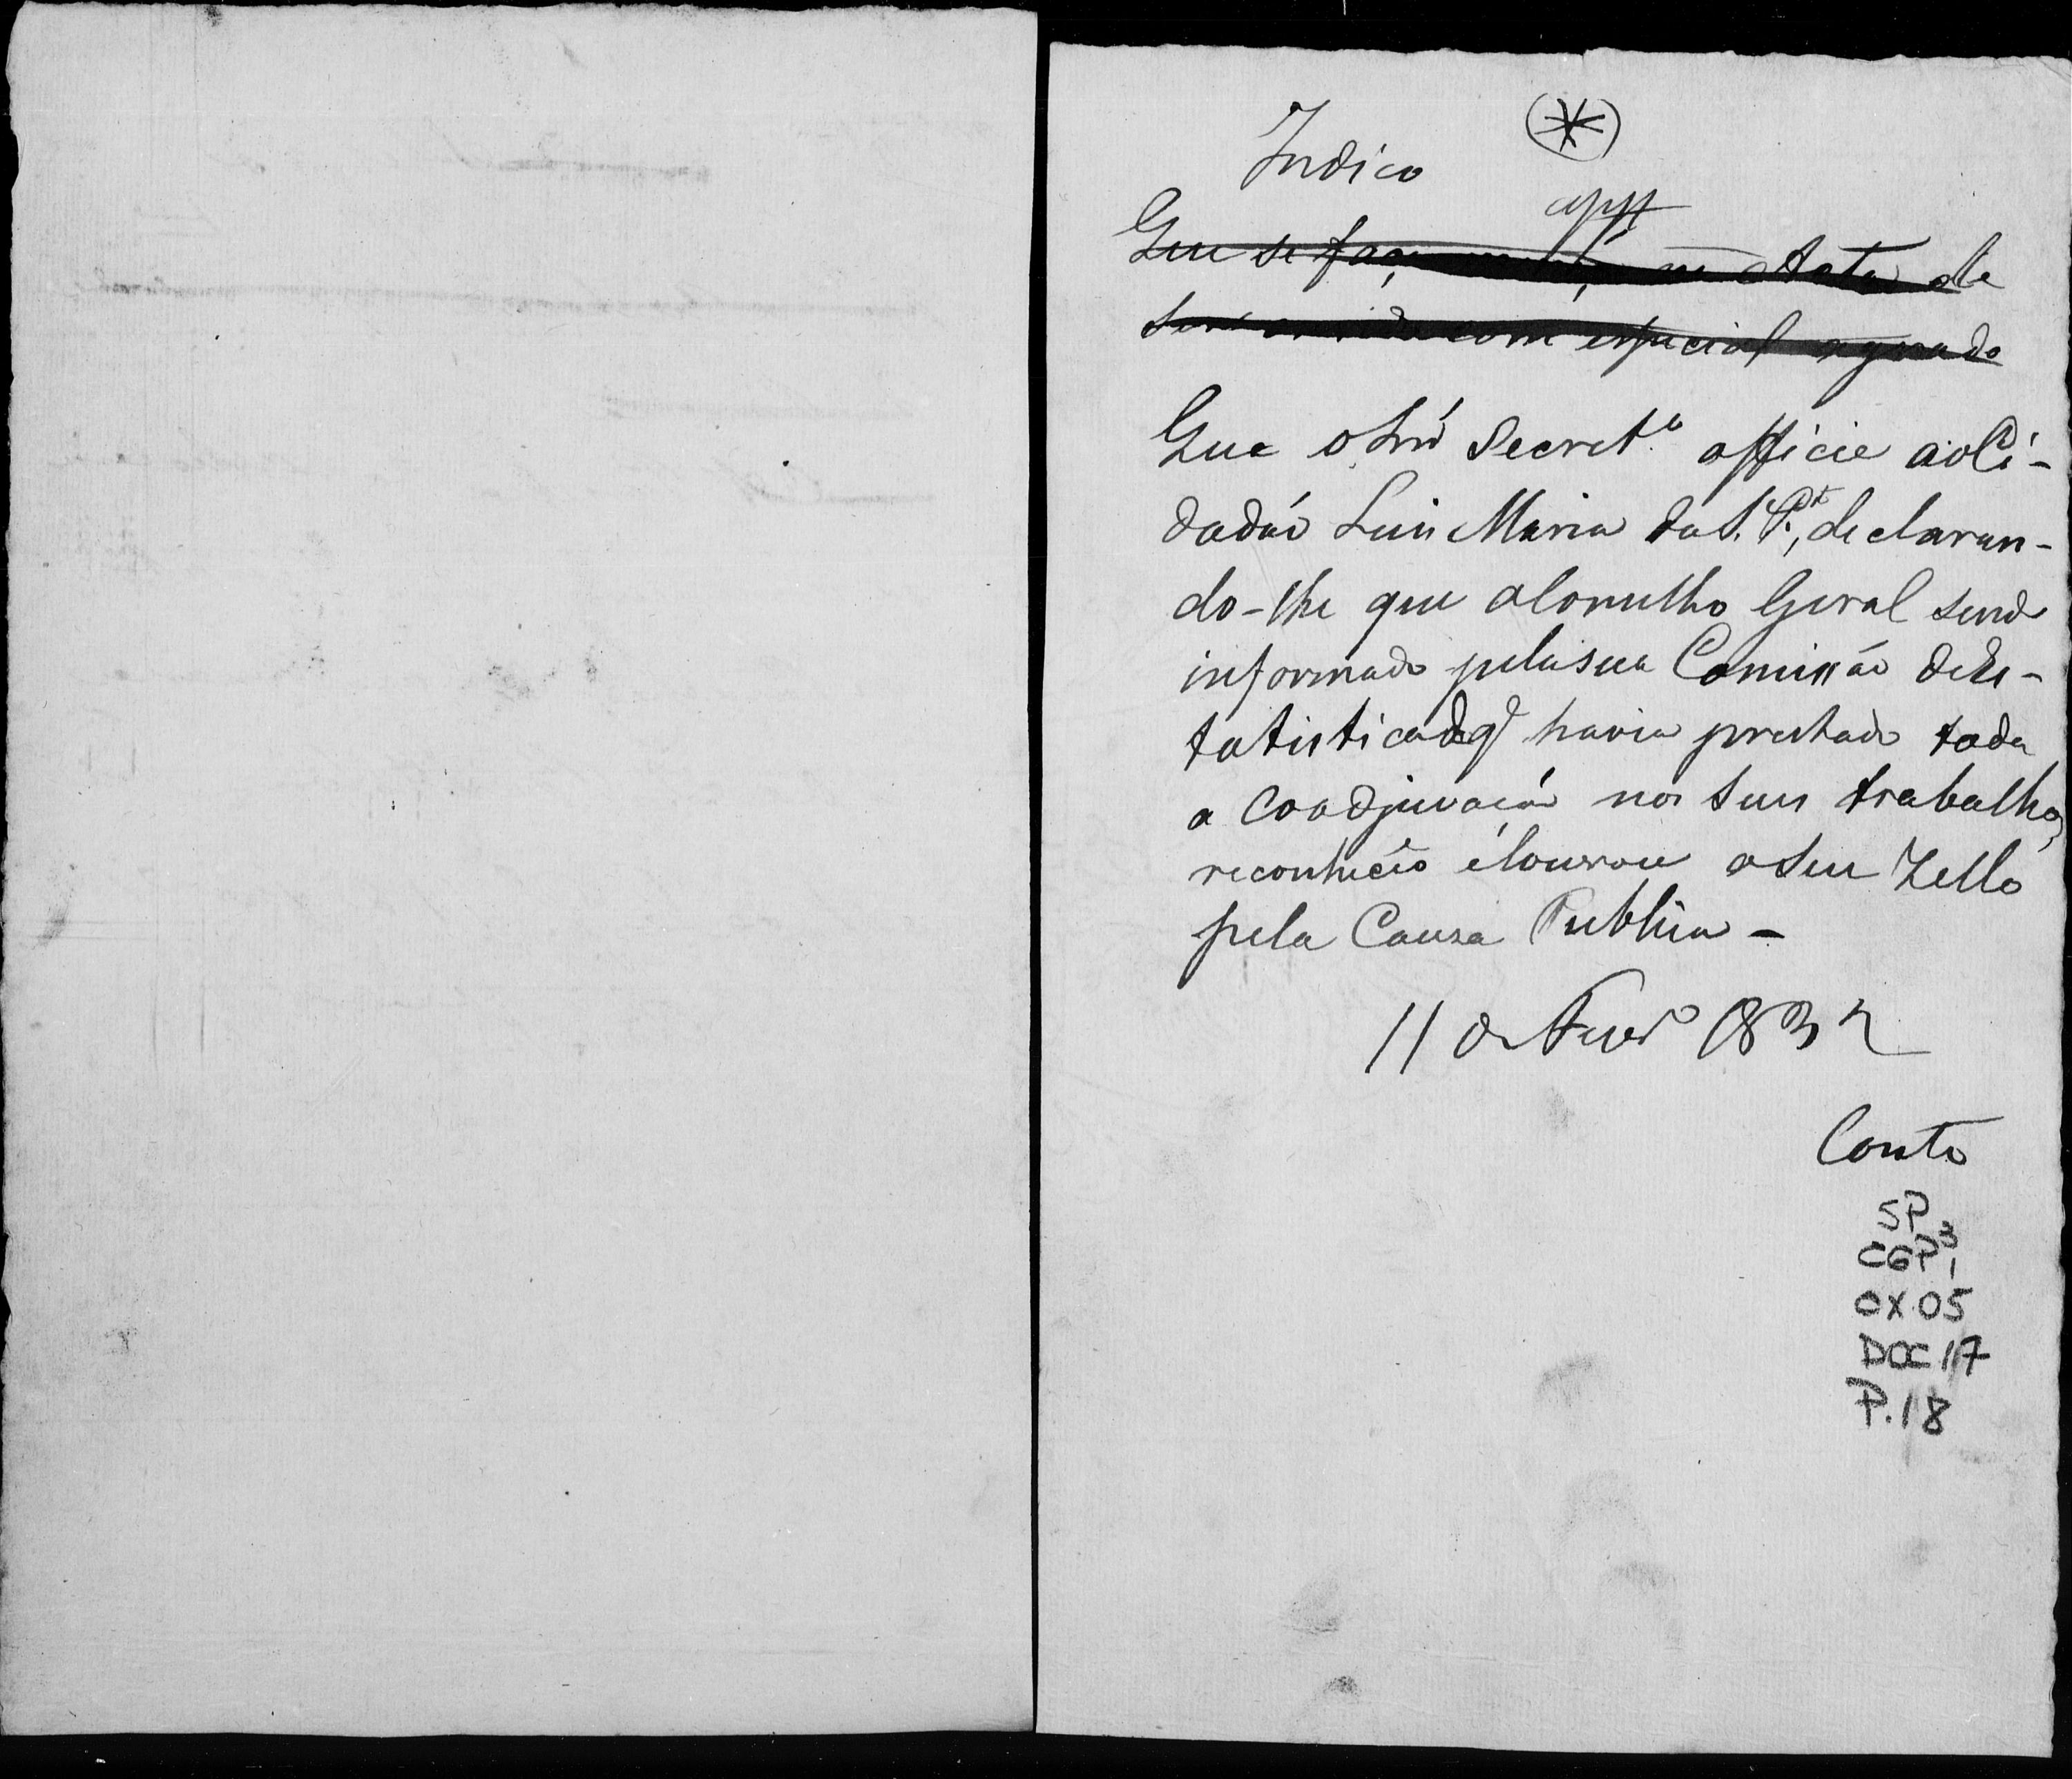 Indico
(*)
app
Que se faça menção na Acta de
com especial agrado
Que o Snr̃ Secretº officie ao Ci-
dadaõ Luis Maria da S. Pt., declaran-
do-lhe que o Conselho Geral send
informado pela sua Comissaõ de Es-
tatistica de q̃ havia prestado toda
a Coadjuvaçaõ nos seus trabalhos,
reconheceo e louvou o seu Zello
pela Causa Publica -
11 de Fevrº 1832
Couto
SP
CGP3 1
CX.05
DOC 17
P.18